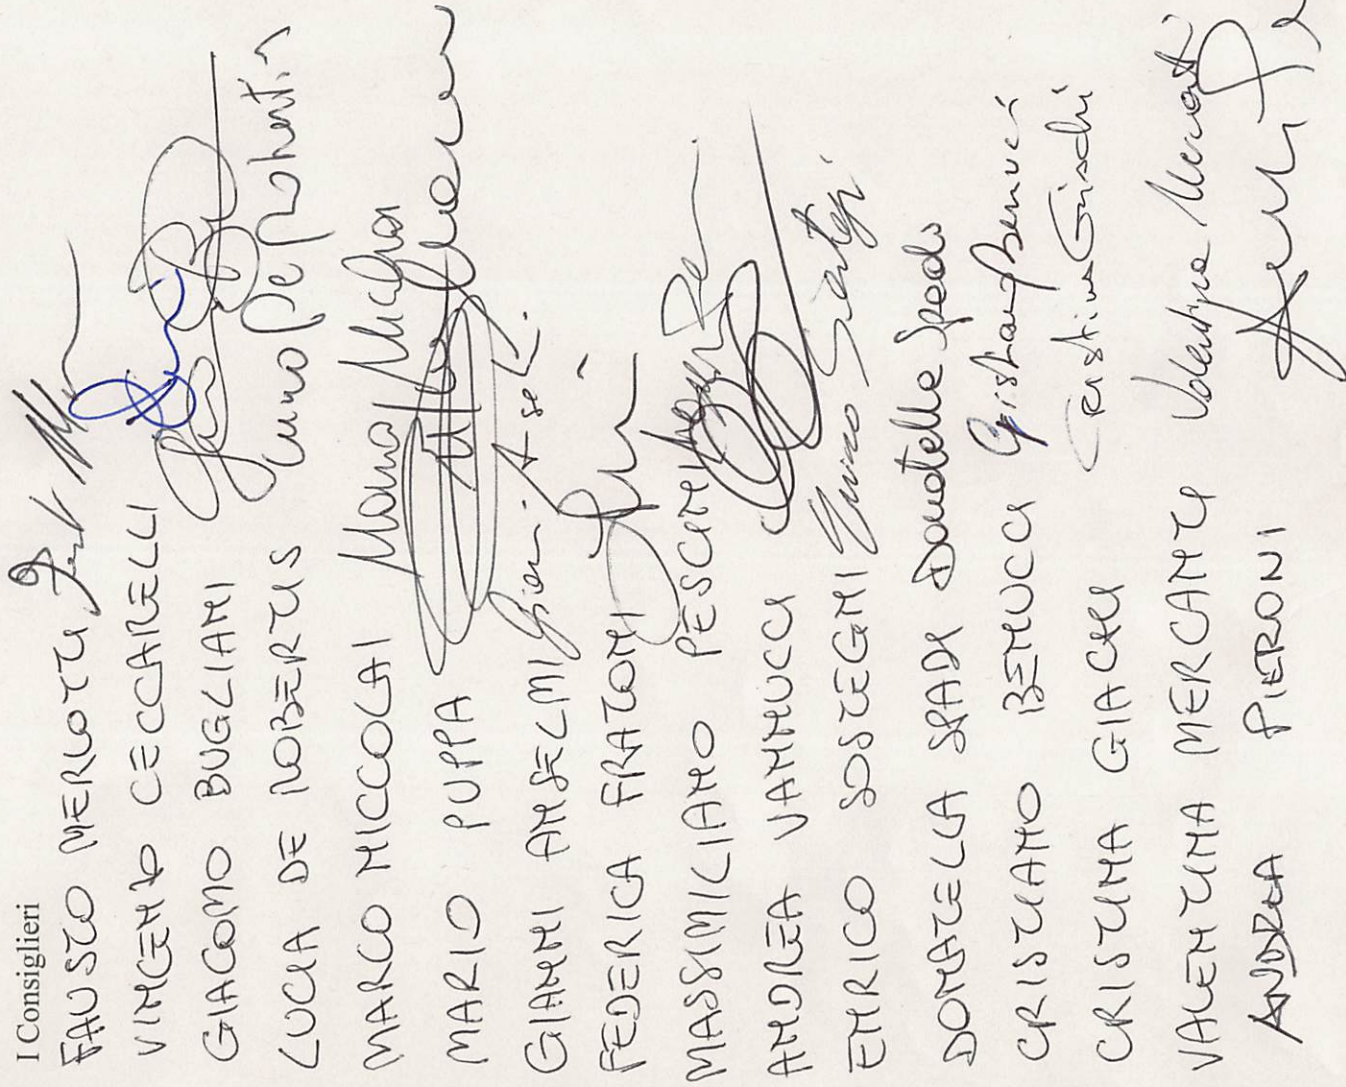 I Consiglieri
FAUSTO MERLOTTI
VINCENZO CECCARELLI
GIACOMO BUGLIANI
LUCIA DE ROBERTIS Lucia De Robertis
MARCO NICCOLAI Marco Niccolai
MARIO PUPPA
GIANNI ANSELMI
FEDERICA FRATONI
MASSIMILIANO PESCINI
ANDREA VANNUCCI
ENRICO SOSTEGNI Enrico Sostegni
DONATELLA SPADI Donatella Spadi
CRISTIANO BENUCCI Cristiano Benucci
CRISTINA GIACHI Cristina Giachi
VALENTINA MERCANTI Valentina Mercanti
ANDREA PIERONI